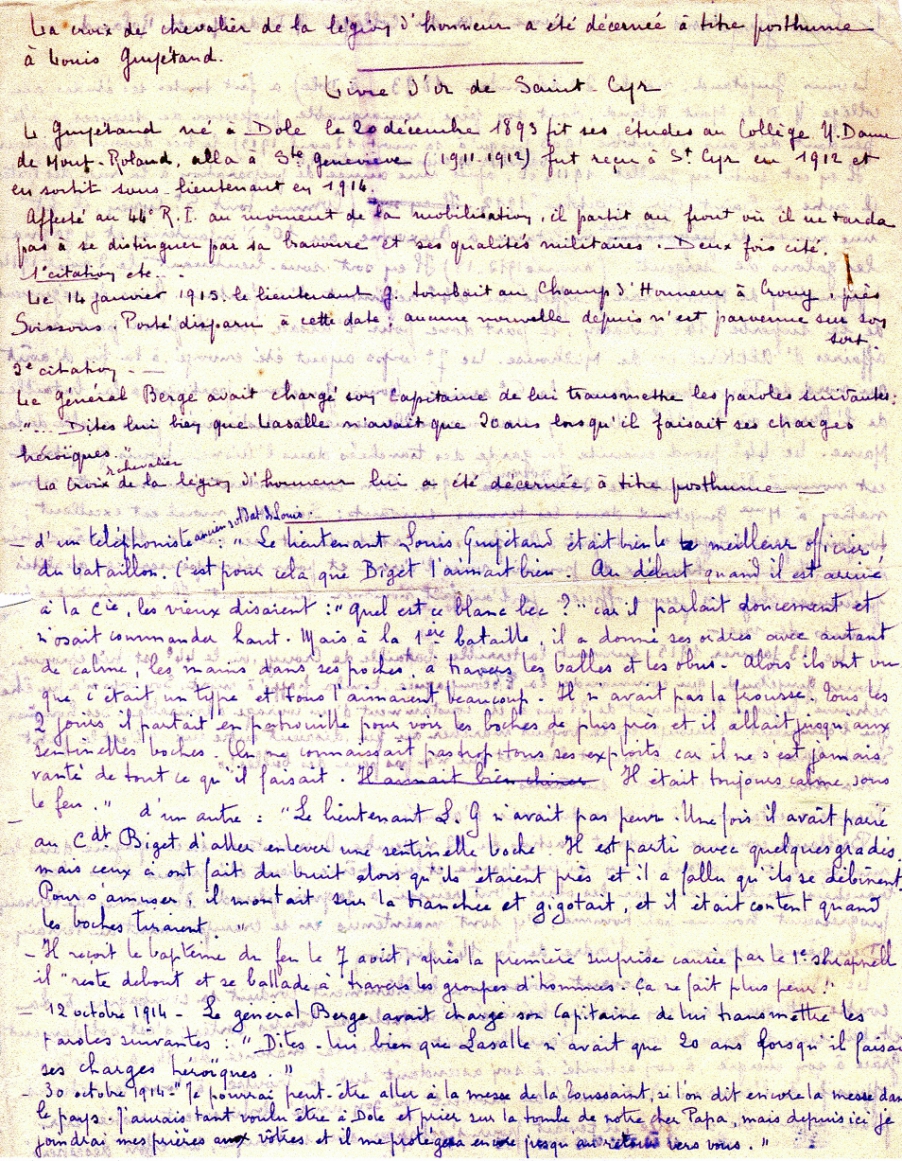 La croix de chevalier de la légion d'honneur a été décernée à titre posthume
à Louis Guyétand.
Livre d'or de Saint Cyr
L. Guyétand né à Dole le 20 décembre 1893 fit ses études au Collège N. Dame
de Mont-Roland, alla à Ste Geneviève (1911-1912) fut reçu à St Cyr en 1912 et
en sortit sous-lieutenant en 1914.
Affecté au 44e R.I. au moment de la mobilisation, il partit au front où il ne tarda
pas à se distinguer par sa bravoure et ses qualités militaires. Deux fois cité.
1e citation etc...
Le 14 janvier 1915, le lieutenant G. tombait au Champ d'Honneur à Crouy, près
Soissons. Porté disparu à cette date, aucune nouvelle depuis n'est parvenue sur son
sort.
2e citation - —
Le Général Berge avait chargé son Capitaine de lui transmettre les paroles suivantes:
"... Dites lui bien que Lasalle n'avait que 20 ans lorsqu'il faisait ses charges
héroïques."
La Croix de chevalier de la légion d'honneur lui a été décernée à titre posthume —
- d'un téléphoniste ancien soldat de Louis : "Le lieutenant Louis Guyétand était bien le meilleur officier
du bataillon. C'est pour cela que Biget l'aimait bien. Au début quand il est arrivé
à la Cie, les vieux disaient : "Quel est ce blanc bec ?" car il parlait doucement et
n'osait commander haut. Mais à la 1ère bataille, il a donné ses ordres avec autant
de calme, les mains dans ses poches, à travers les balles et les obus - Alors ils ont vu
que c'était un type et tous l'aimaient beaucoup. Il n'avait pas la frousse, tous les
2 jours il partait en patrouille pour voir les boches de plus près et il allait jusqu'aux
sentinelles boches. On ne connaissait pas trop tous ses exploits car il ne s'est jamais
vanté de tout ce qu'il faisait. Il aimait bien Il était toujours calme sous
le feu."
- d'un autre : "Le lieutenant L. G n'avait pas peur. Une fois il avait parié
au Cdt Biget d'aller enlever une sentinelle boche. Il est parti avec quelques gradés,
mais ceux ci ont fait du bruit alors qu'ils étaient près et il a fallu qu'ils se débinent.
Pour s'amuser, il montait sur la tranchée et gigotait, et il était content quand
les boches tiraient."
- Il reçoit le baptême du feu le 7 août, après la première surprise causée par le 1e shrapnell
il "reste debout et se ballade à travers les groupes d'hommes. Ça ne fait plus peur!"
- 12 octobre 1914 - Le général Berge avait chargé son Capitaine de lui transmettre les
paroles suivantes : "Dites-lui bien que Lasalle n'avait que 20 ans lorsqu'il faisait
ses charges héroïques."
- 30 octobre 1914 - "Je pourrai peut-être aller à la messe de la Toussaint, si l'on dit encore la messe dans
le pays. J'aurais tant voulu être à Dole et prier sur la tombe de notre cher Papa, mais depuis ici je
joindrai mes prières aux vôtres et il me protégera encore jusqu'au retour vers vous."